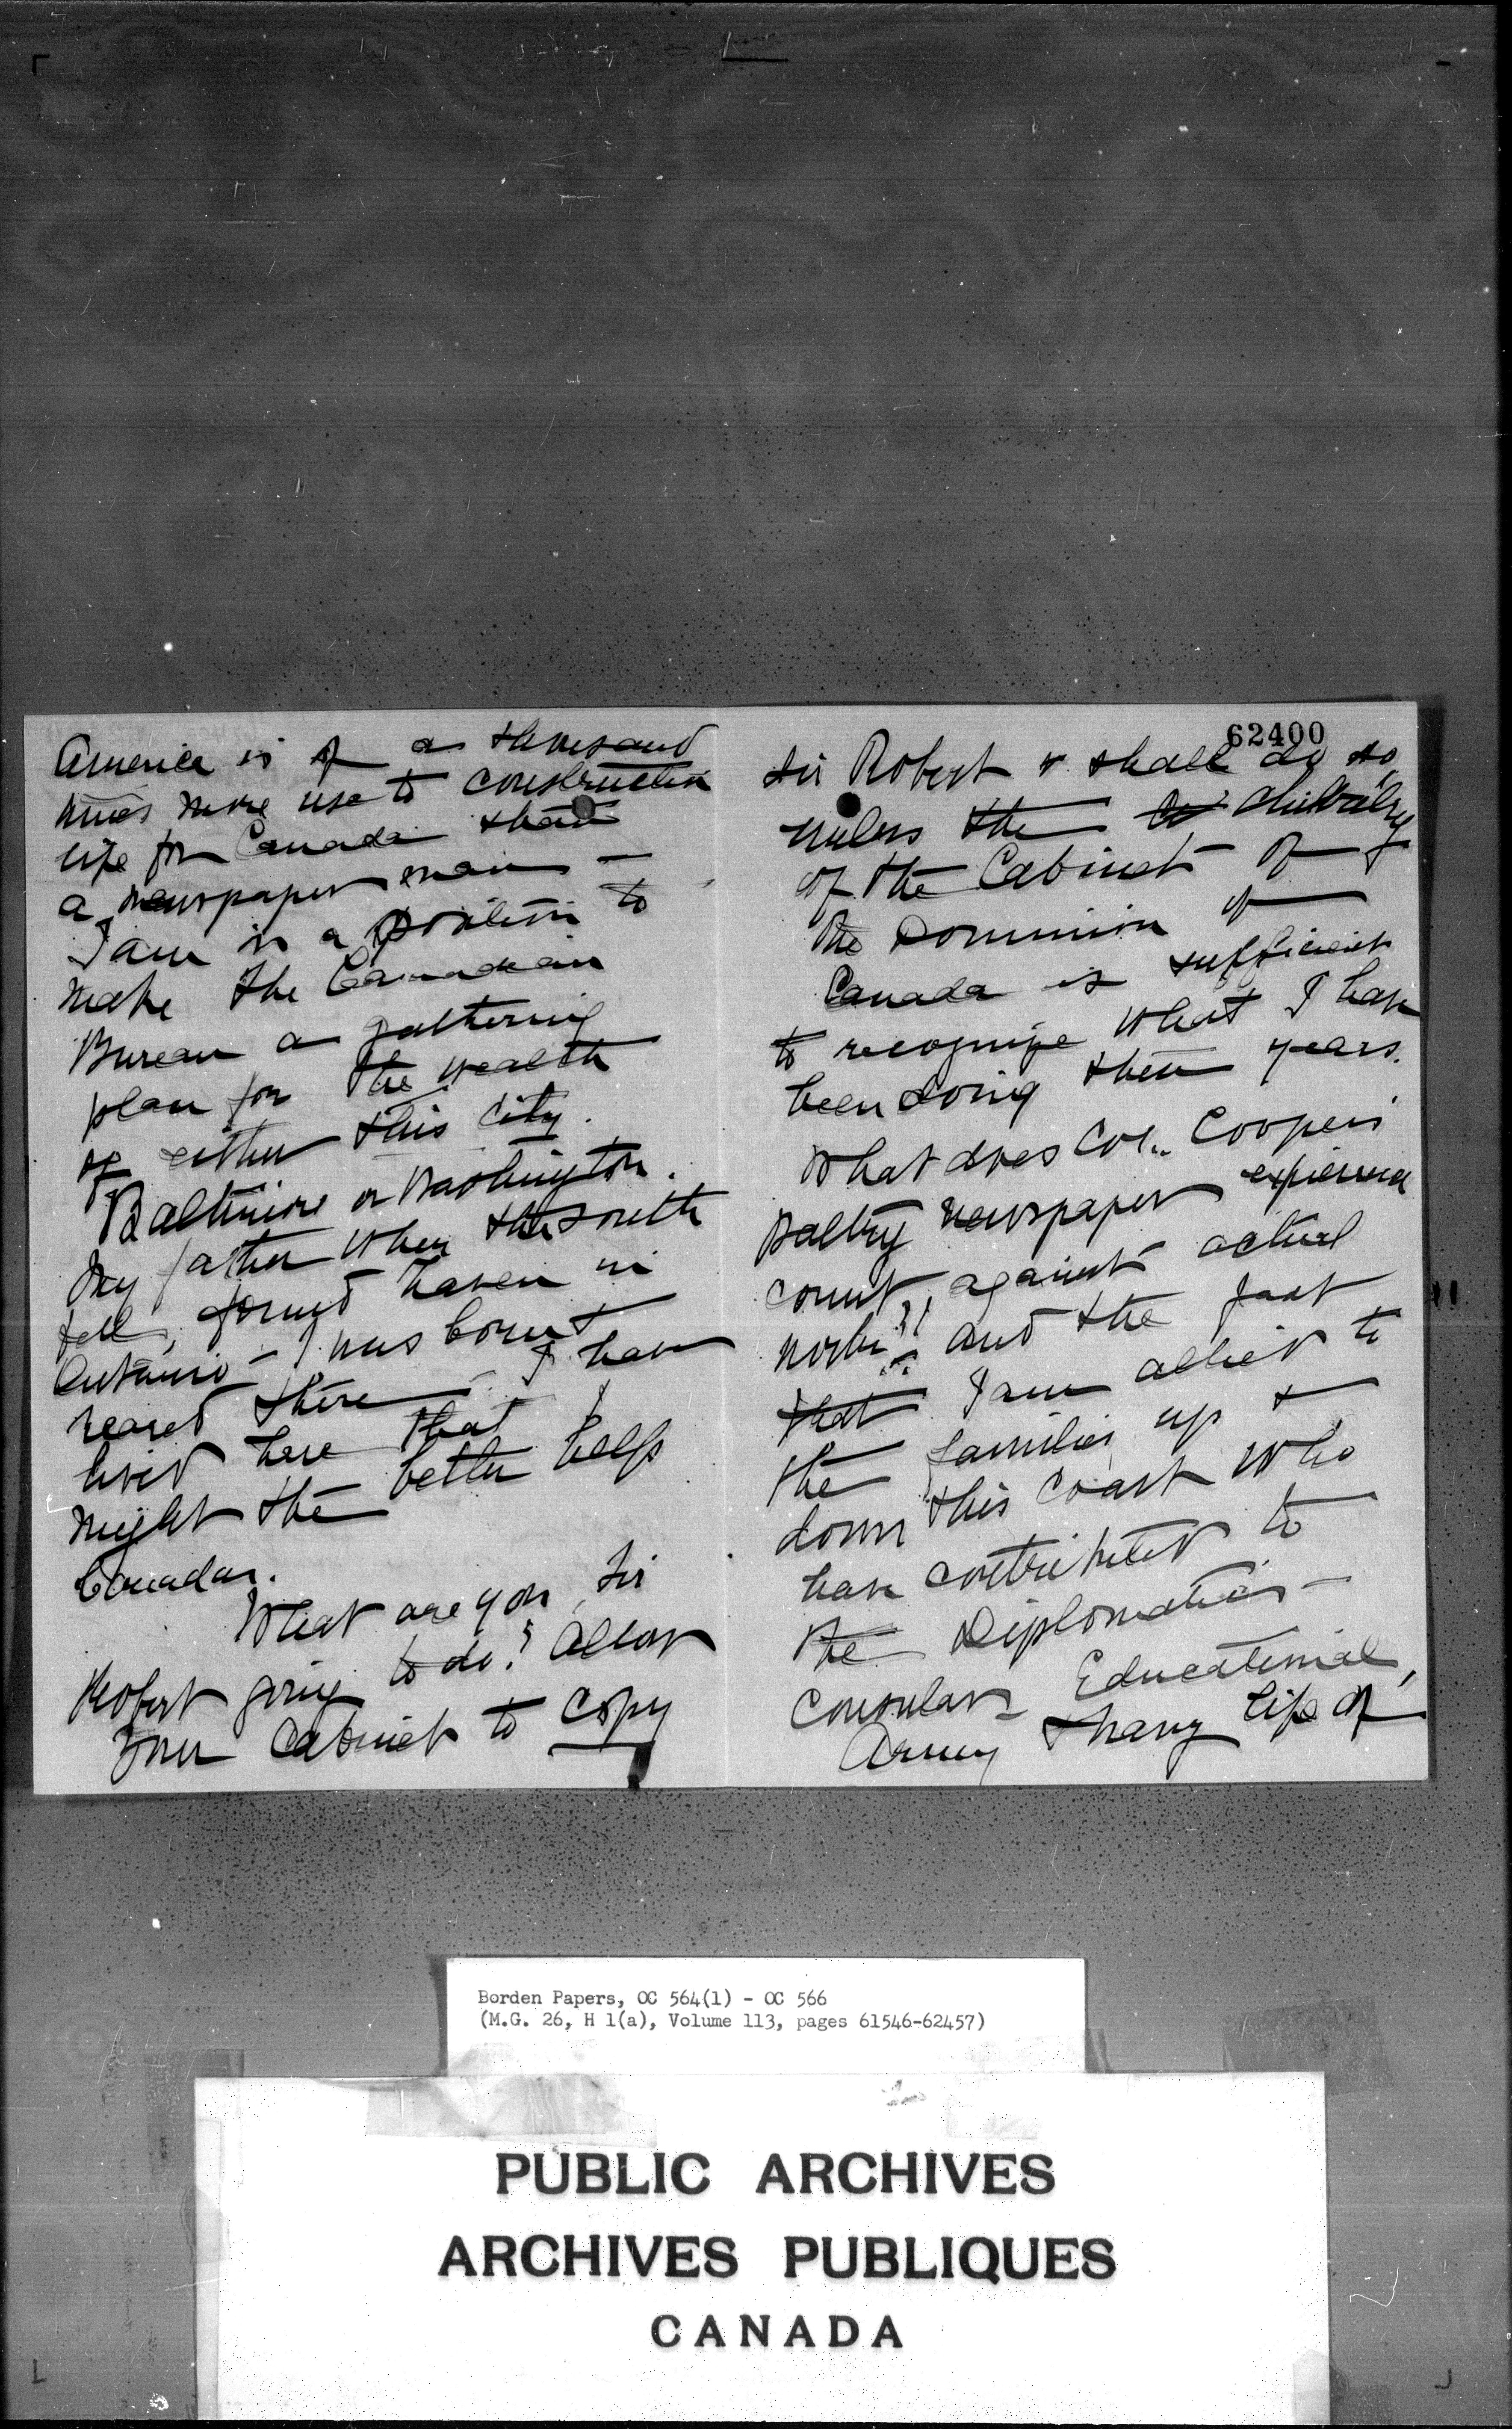 America is of a thousand
times more use to constructive
life for Canada than
a newspaper man —
I am in a position to
make the Canadian
Bureau a gathering
plan for the wealth
of either this city.
Baltimore or Washington.
My father when the South
fell, found haven in
Ontario — I was born &
reared there — I have
lived here that I
might the better help
Canada.
What are you, Sir
Robert going to do? Allow
your Cabinet to copy
62400
Sir Robert & shall do so,
unless the chivalry
of the Cabinet of
the Dominion of
Canada is sufficient
to recognize what I have
been doing these years.
What does Col. Cooper's
paltry newspaper experience
count, against actual
work!! and the fact
that I am allied to
the families up &
down this coast who
have contributed to
the Diplomatic —
Consular — Educational,
Army & Navy life of
Borden Papers, OC 564(1) - OC 566
(M.G. 26, H 1(a), Volume 113, pages 61546-62457)
PUBLIC ARCHIVES
ARCHIVES PUBLIQUES
CANADA